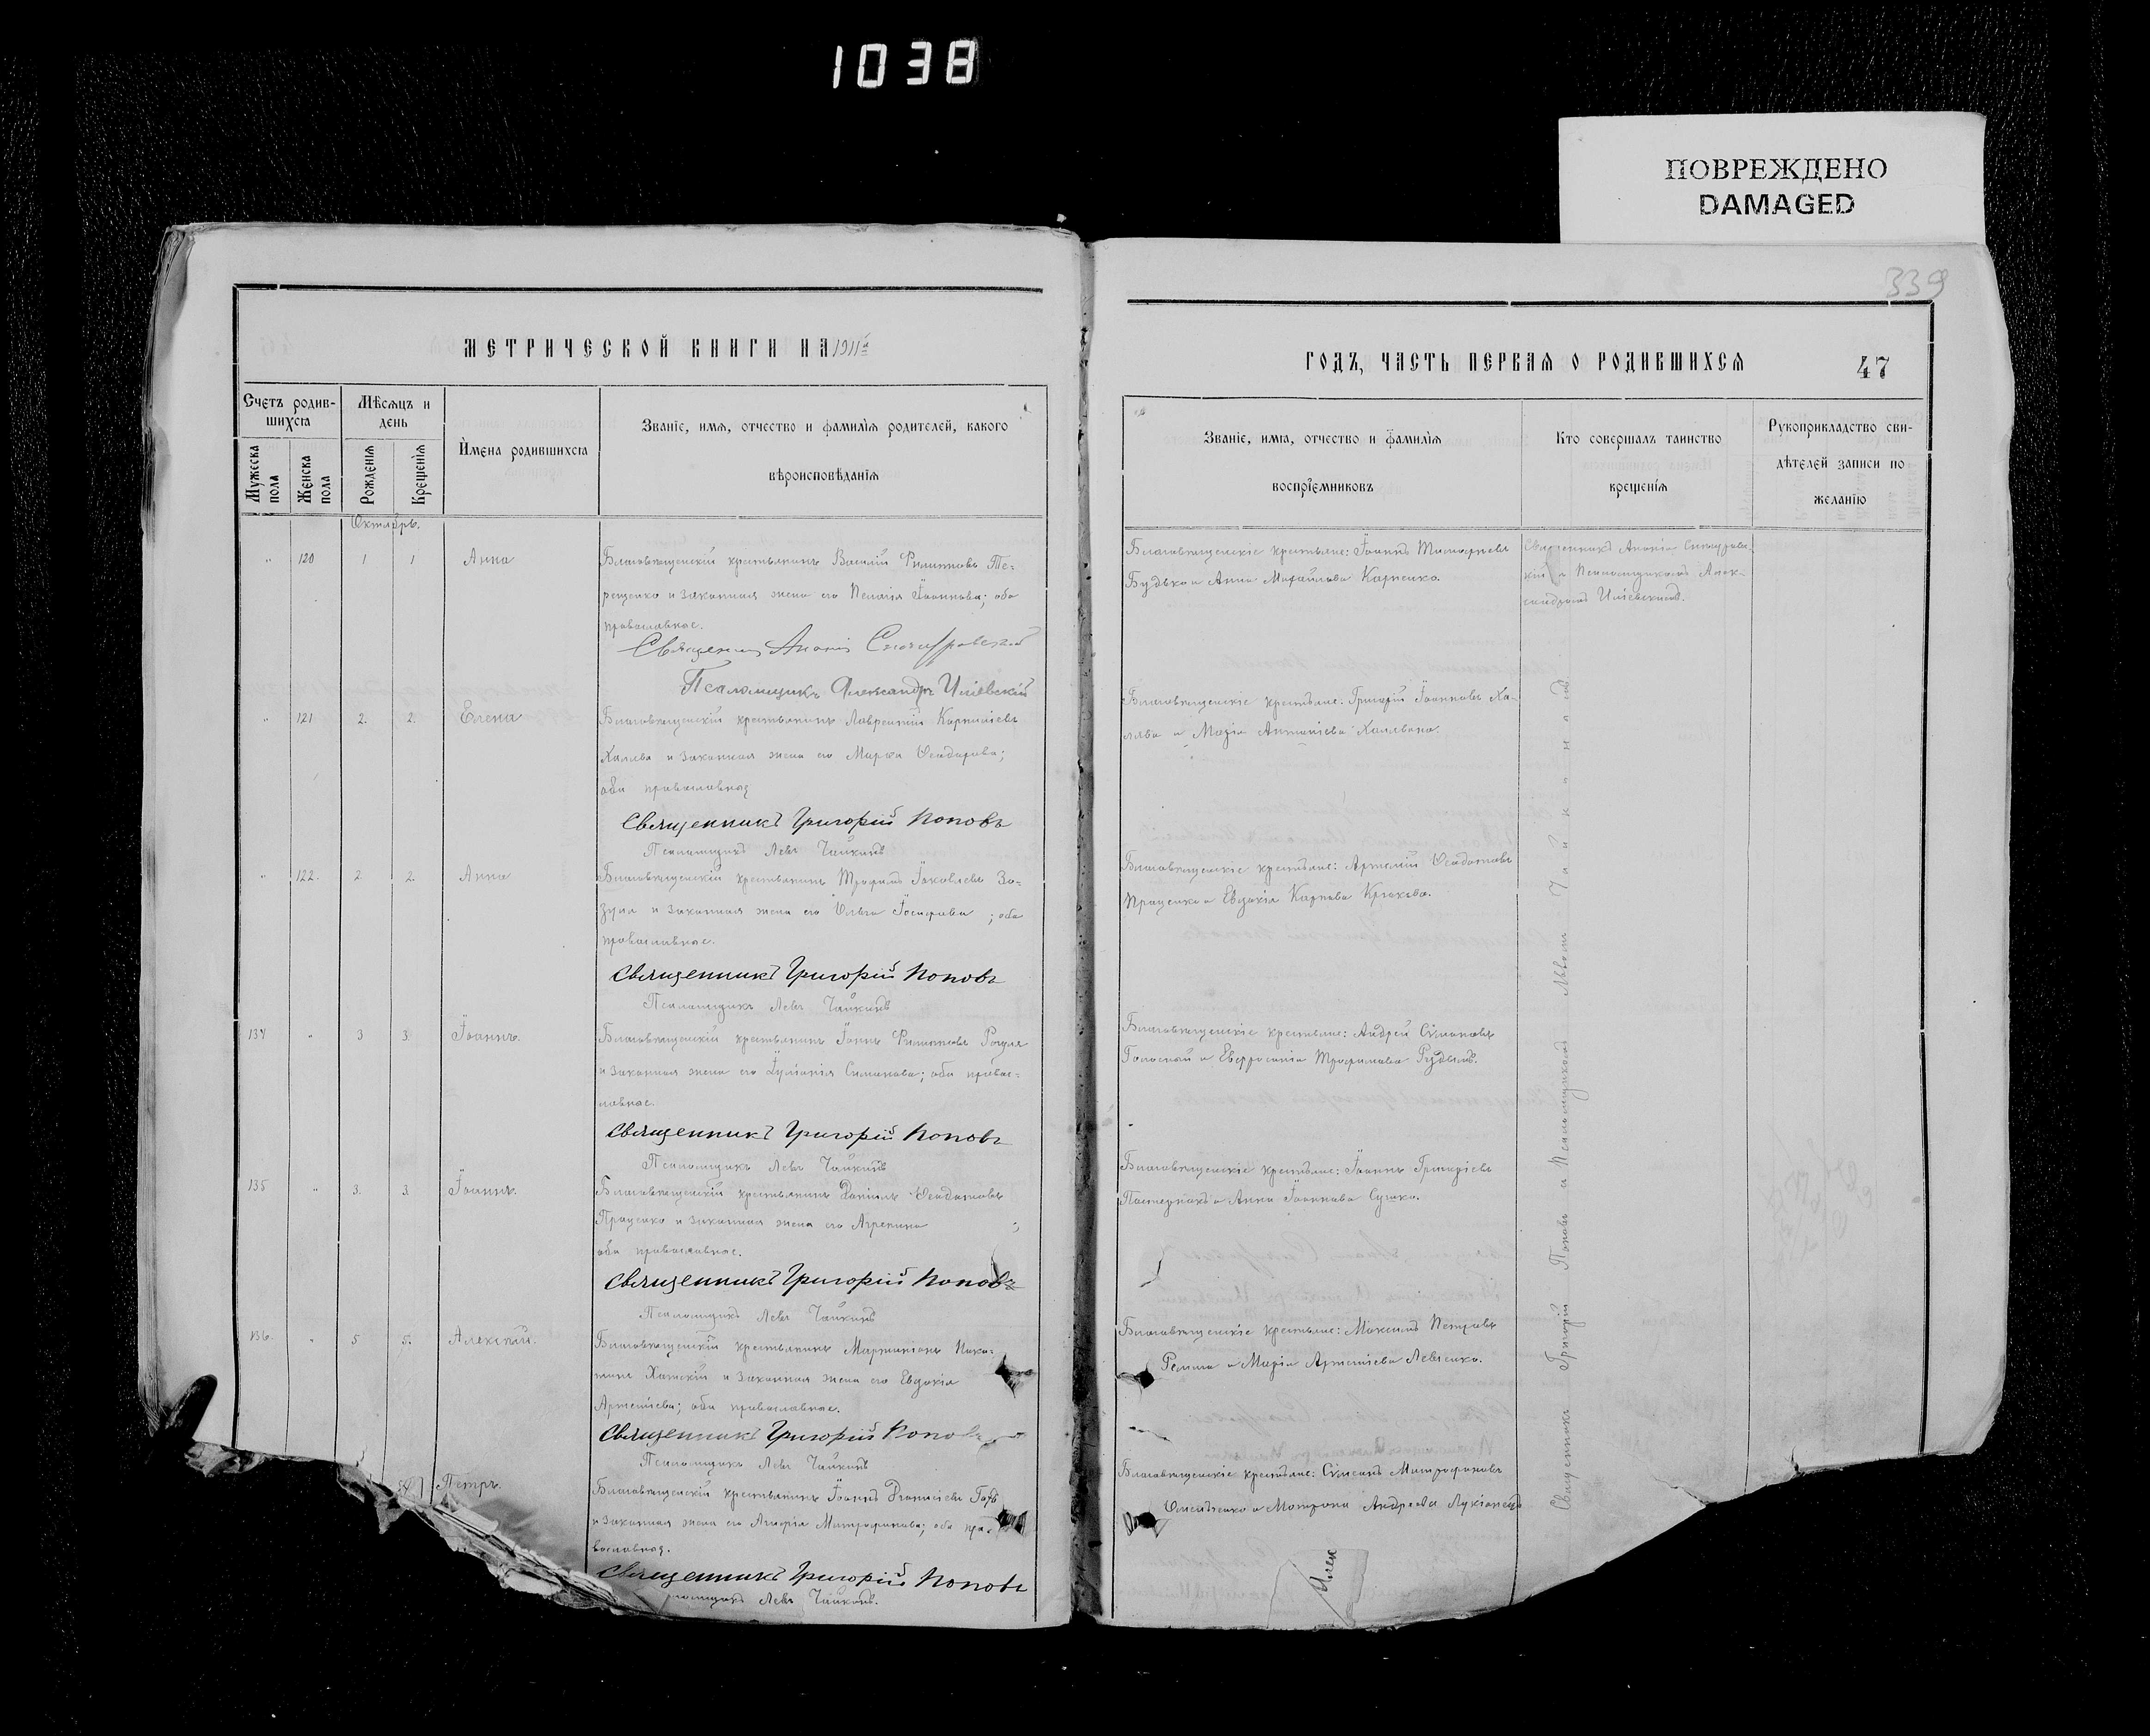 1038
ПОВРЕЖДЕНО
DAMAGED
339
МЕТРИЧЕСКОЙ КНИГИ НА 1911й
ГОДЪ, ЧАСТЬ ПЕРВАЯ О РОДИВШИХСЯ
47
Счетъ родившихся
Мужеска пола
Женска пола
Мѣсяцъ и день
Рожденія
Крещенія
Имена родившихся
Званіе, имя, отчество и фамилія родителей, какого
вѣроисповѣданія
Званіе, имя, отчество и фамилія
воспріемниковъ
Кто совершалъ таинство
крещенія
Рукоприкладство сви-
дѣтелей записи по
желанію
Октябрь.
„ 120 1 1 Анна
Благовѣщенскій крестьянинъ Василій Филипповъ Те-
рещенко и законная жена его Пелагія Іоаннова; оба
православные.
Священникъ
Псаломщикъ Александръ Илiевскій
Благовѣщенскіе крестьяне: Іоаннъ Тимофеевъ
Будько и Анна Михайлова Карпенко.
Священникъ
и Псаломщикъ Алек-
сандръ Илiевскій.
„ 121 2. 2. Елена
Благовѣщенскій крестьянинъ Лаврентій
Халява и законная жена его Марѳа Ѳеодорова;
оба православные
Священникъ Григорій Поповъ
Псаломщикъ Левъ Чайкинъ
Благовѣщенскіе крестьяне: Григорій Іоанновъ Ха-
лява и Марія Халявина.
„ 122. 2 2. Анна
Благовѣщенскій крестьянинъ Трофимъ Іаковлевъ Зо-
зуля и законная жена его Ольга Іосифова; оба
православные.
Священникъ Григорій Поповъ
Псаломщикъ Левъ Чайкинъ
Благовѣщенскіе крестьяне: Артемій
Проценко и Евдокія Карпова Крюкова.
134 „ 3 3. Іоаннъ.
Благовѣщенскій крестьянинъ Филипповъ Рогуля
и законная жена его Симонова; оба правос-
лавные.
Священникъ Григорій Поповъ
Псаломщикъ Левъ Чайкинъ
Благовѣщенскіе крестьяне: Андрей Симоновъ
и Евфросинія Трофимова
135 „ 3. 3. Іоаннъ.
Благовѣщенскій крестьянинъ Даніилъ
Проценко и законная жена его Агрепина ;
оба православные.
Священникъ Григорій Поповъ
Псаломщикъ Левъ Чайкинъ
Благовѣщенскіе крестьяне: Іоаннъ Григоріевъ
Пастернакъ и Анна Іоаннова Сушко.
136. „ 5 5. Алексѣй.
Благовѣщенскій крестьянинъ
и законная жена его Евдокія
Артеміева; оба православные.
Священникъ Григорій Поповъ
Псаломщикъ Левъ Чайкинъ
Благовѣщенскіе крестьяне: Максимъ Петровъ
и Марія Артеміева Левченко.
Петръ.
Благовѣщенскій крестьянинъ Іоаннъ
и законная жена его Митрофанова; оба пра-
вославные.
Священникъ Григорій Поповъ
Левъ Чайкинъ.
Благовѣщенскіе крестьяне: Митрофановъ
и Матрона Андреева
Священникъ Григорій Поповъ и Псаломщикъ Львомъ Чайкинымъ